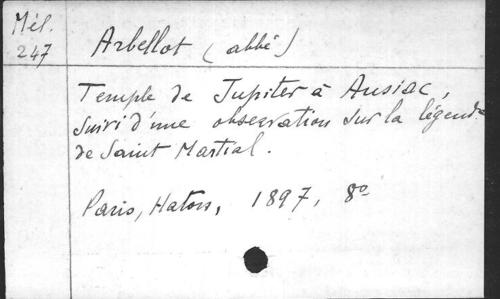 Mél.
247
Arbellot (abbé)
Temple de Jupiter à Ausiac,
suivi d'une observation sur la légende
de Saint Martial.
Paris, Haton, 1897, 8º